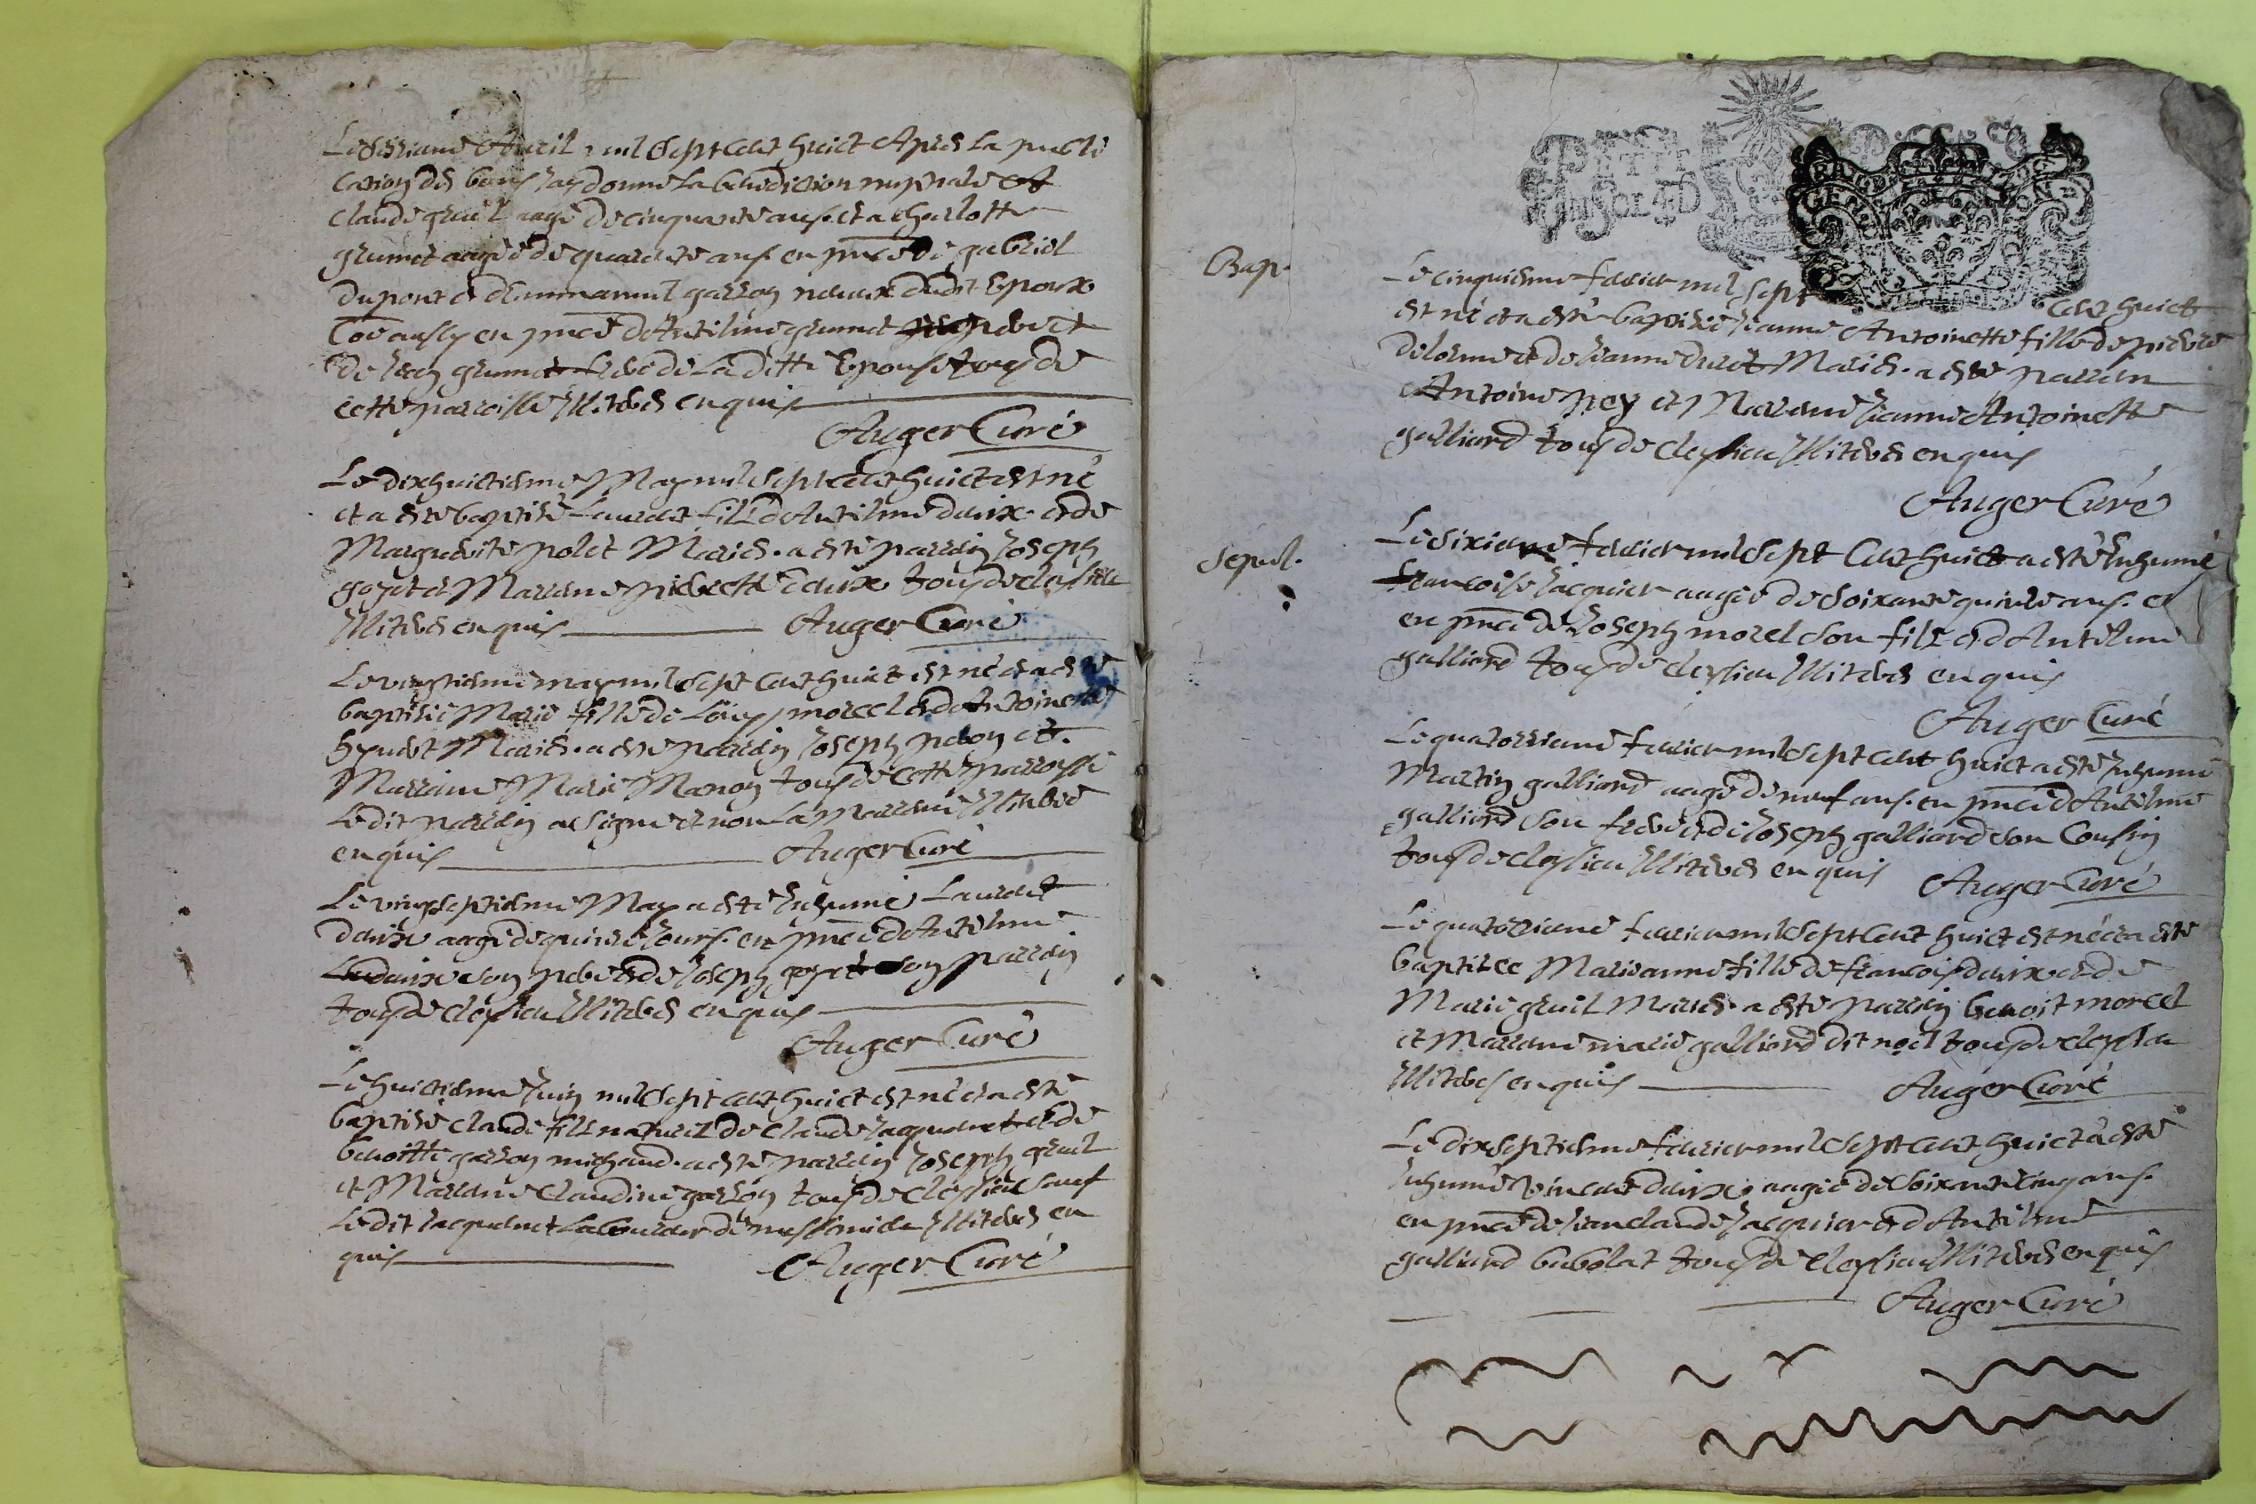 Le siziame Avril mil sept cent huict Apres la publi
cation des bans jay donné la benediction nuptiale et
claude gruil aagé de cinquante ans. et a charlotte
grumet aagée de quarente ans en pnce de gabriel
dupont et d'Emmanuel garson neveux dudit Epoux
Coe aussy en pnce d'Antelme grumet et
de Jean grumet frere de laditte Epouse tous de
cette parroisse Illiteres enquis
Auger Curé
Le dixhuictieme May mil sept cent huict est né
et a esté baptisé Laurent fils d'Antelme daix et de
Marguerite polet Mariés. a esté parrain Joseph
goyet et Marrene pierrette daix tous de cleysieu
Illiteres enquis Auger Curé
Le vingtieme may mil sept cent huict est né et a esté
baptisée Marie fille de Loüys morel et d'Antoinette
Mariés. a esté parrain Joseph et
Marraine Marie tous de cette parroisse
Ledit parrain a signé et non la Marrene Illiteree
enquis Auger Curé
Le vingseptieme May a esté Inhumé Laurent
daix aagé de quinze Jours. en pnce d'Antelme
daix son pere et de Joseph goyet son parrain
tous de cleysieu Illiteres enquis
Auger Curé
Le huictieme Juin mil sept cent huict est né et a esté
baptisé claude fils naturel de claude Jacquemet et de
benoitte garson michaud. a esté parrain Joseph gruil
et Marrene claudine garson tous de cleysieu sauf
Ledit Jacquemet Laboureur de Illiteres en
quis Auger Curé
PETIT
GENERALITE
Bap.
Le cinquieme fevrier mil sept cent huict
est né et a esté baptisée Jeanne Antoinette fille de pierre
delorme et de Jeanne Mariés. a esté parrain
Antoine pey et Marrene Jeanne Antoinette
galliard tous de cleysieu Illiteres enquis
Auger Curé
Sepul.
Le sixieme fevrier mil sept cent huict a esté Inhumé
francoise Jacquier aagée de soixante quinze ans. et
en pnce de Joseph morel son fils et d'Antelme
galliard tous de cleysieu Illiteres enquis
Auger Curé
Le quatorziame fevrier mil sept cent huict a esté Inhumé
Martin galliard aagé de neuf ans. en pnce d'Antelme
galliard son frere et de Joseph galliard son Cousin
tous de cleysieu Illiteres enquis Auger Curé
Le quatorziame fevrier mil sept cent huict est né et a esté
baptisee Marieanne fille de francois daix et de
Marie gruil Mariés. a esté parrain benoit morel
et Marrene marie galliard dit noel tous de cleysieu
Illiteres enquis Auger Curé
Le dixseptieme fevrier mil sept cent huict a esté
Inhumé vincent daix aagé de soixante cinq ans.
en pnce de Jean claude Jacquier et d'Antelme
galliard babolat tous de cleysieu Illiteres enquis
Auger Curé